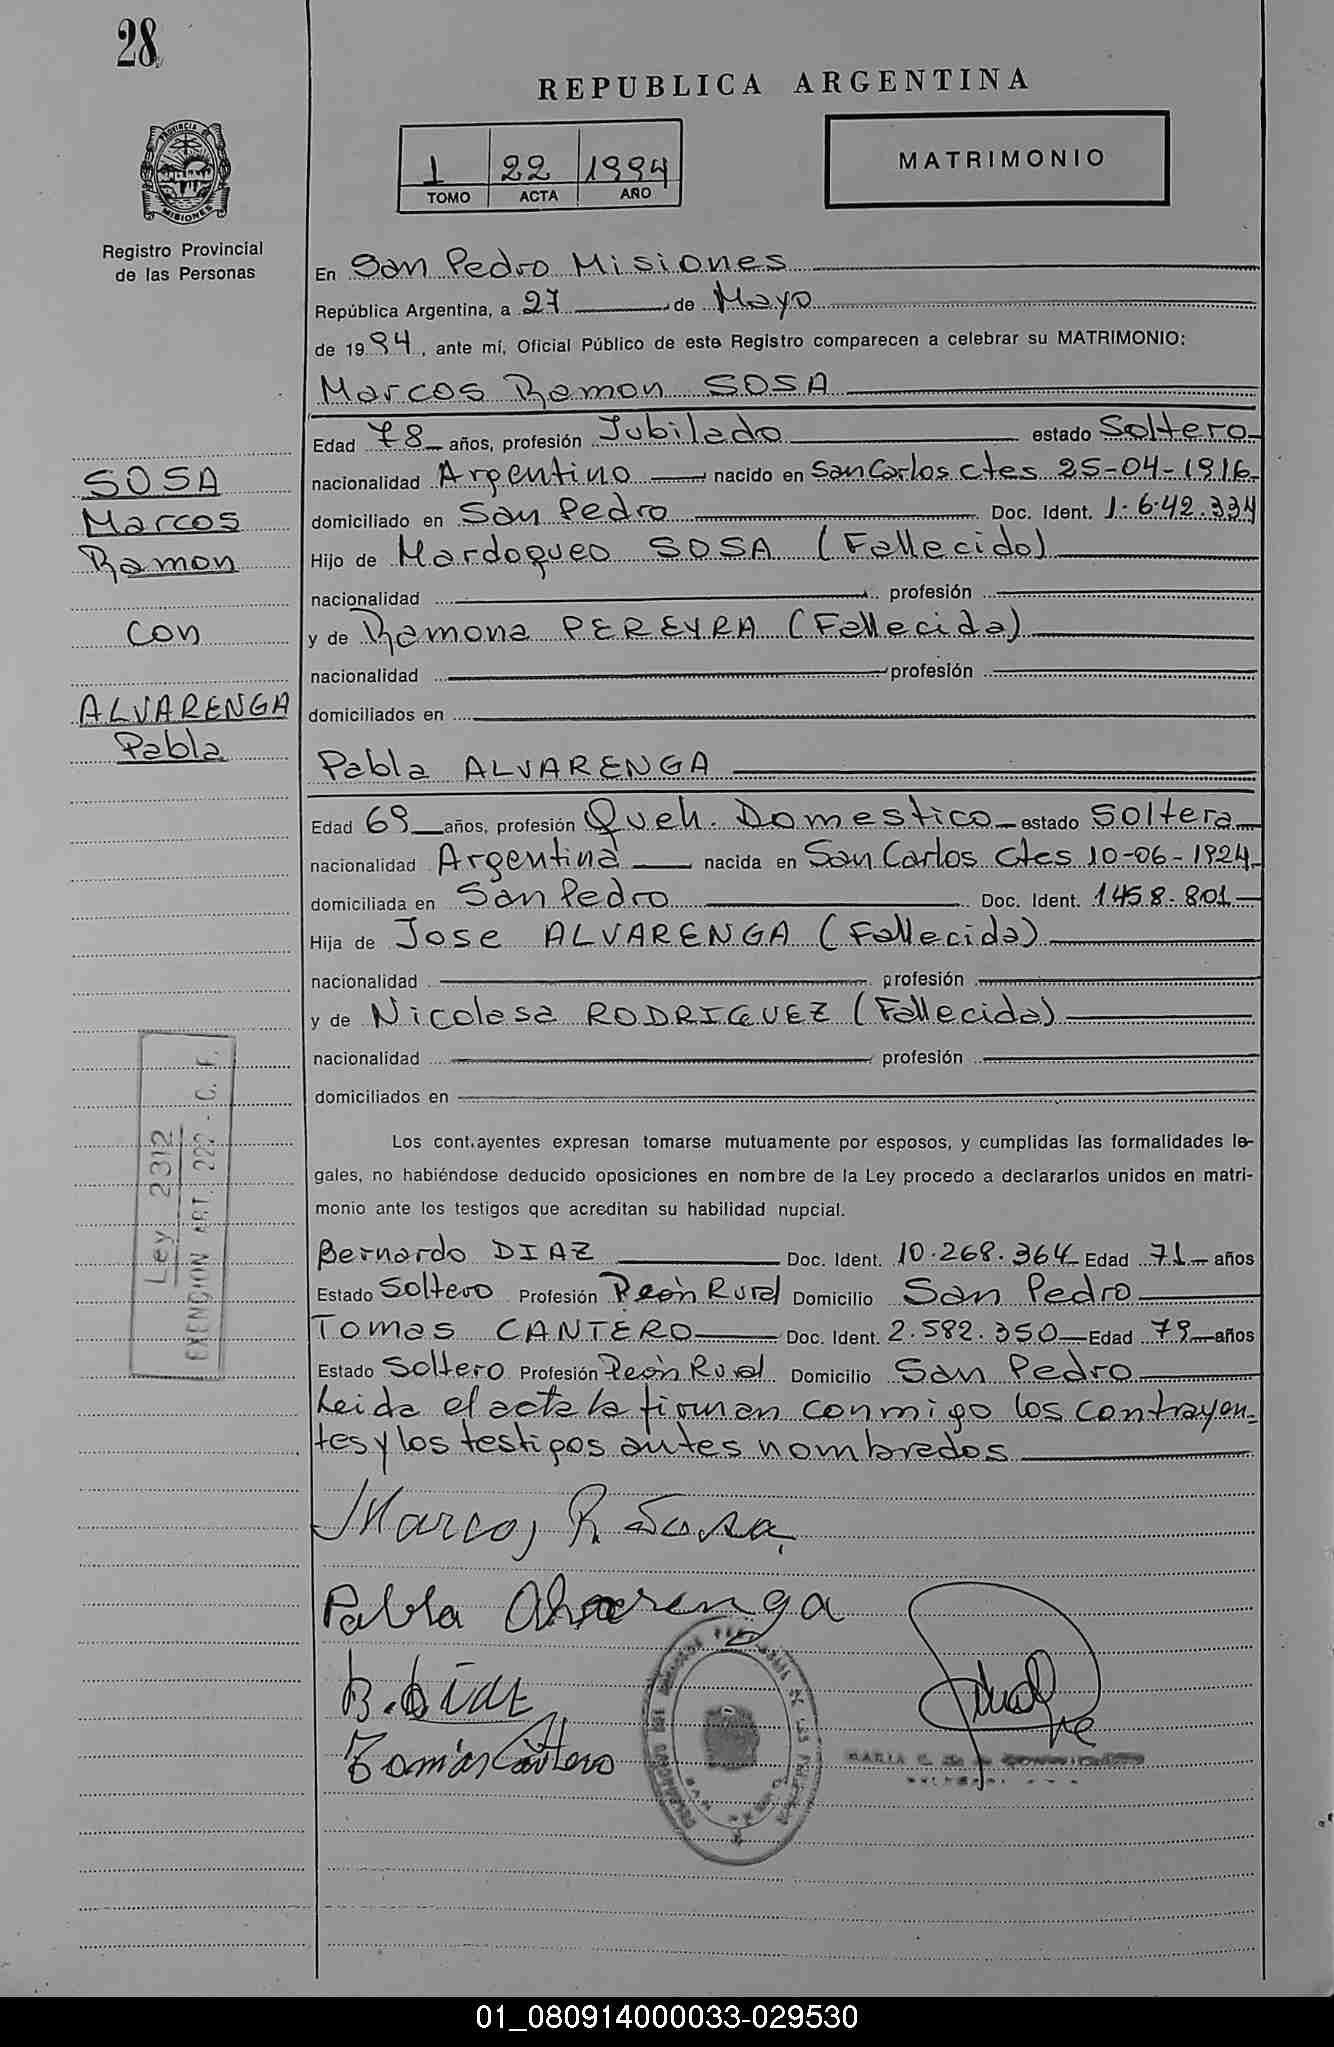 28
REPUBLICA ARGENTINA
PROVINCIA DE
MISIONES
Registro Provincial
de las Personas
1 22 1994
TOMO ACTA AÑO
MATRIMONIO
En San Pedro Misiones
República Argentina, a 27 de Mayo
de 1994, ante mí, Oficial Público de este Registro comparecen a celebrar su MATRIMONIO:
Marcos Ramon SOSA
Edad 78 años, profesión Jubilado estado Soltero
nacionalidad Argentino nacido en San Carlos Ctes 25-04-1916
domiciliado en San Pedro Doc. Ident. 1.642.334
Hijo de Mardoqueo SOSA (Fallecido)
nacionalidad profesión
y de Ramona PEREYRA (Fallecida)
nacionalidad profesión
domiciliados en
SOSA
Marcos
Ramon
con
ALVARENGA
Pabla
Pabla ALVARENGA
Edad 69 años, profesión Queh. Domestico estado Soltera
nacionalidad Argentina nacida en San Carlos Ctes 10-06-1924
domiciliada en San Pedro Doc. Ident. 1458.801
Hija de Jose ALVARENGA (Fallecida)
nacionalidad profesión
y de Nicolasa RODRIGUEZ (Fallecida)
nacionalidad profesión
domiciliados en
Ley 2312
EXENCION ART. 222 - C. F.
Los contrayentes expresan tomarse mutuamente por esposos, y cumplidas las formalidades le-
gales, no habiéndose deducido oposiciones en nombre de la Ley procedo a declararlos unidos en matri-
monio ante los testigos que acreditan su habilidad nupcial.
Bernardo DIAZ Doc. Ident. 10.268.364 Edad 71 años
Estado Soltero Profesión Peón Rural Domicilio San Pedro
Tomas CANTERO Doc. Ident. 2.582.350 Edad 79 años
Estado Soltero Profesión Peón Rural Domicilio San Pedro
Leida el acta la firman conmigo los contrayen=
tes y los testigos antes nombrados
Marcos R Sosa
Pabla Alvarenga
B. Diaz
Tomás Cantero
MARIA
01_080914000033-029530